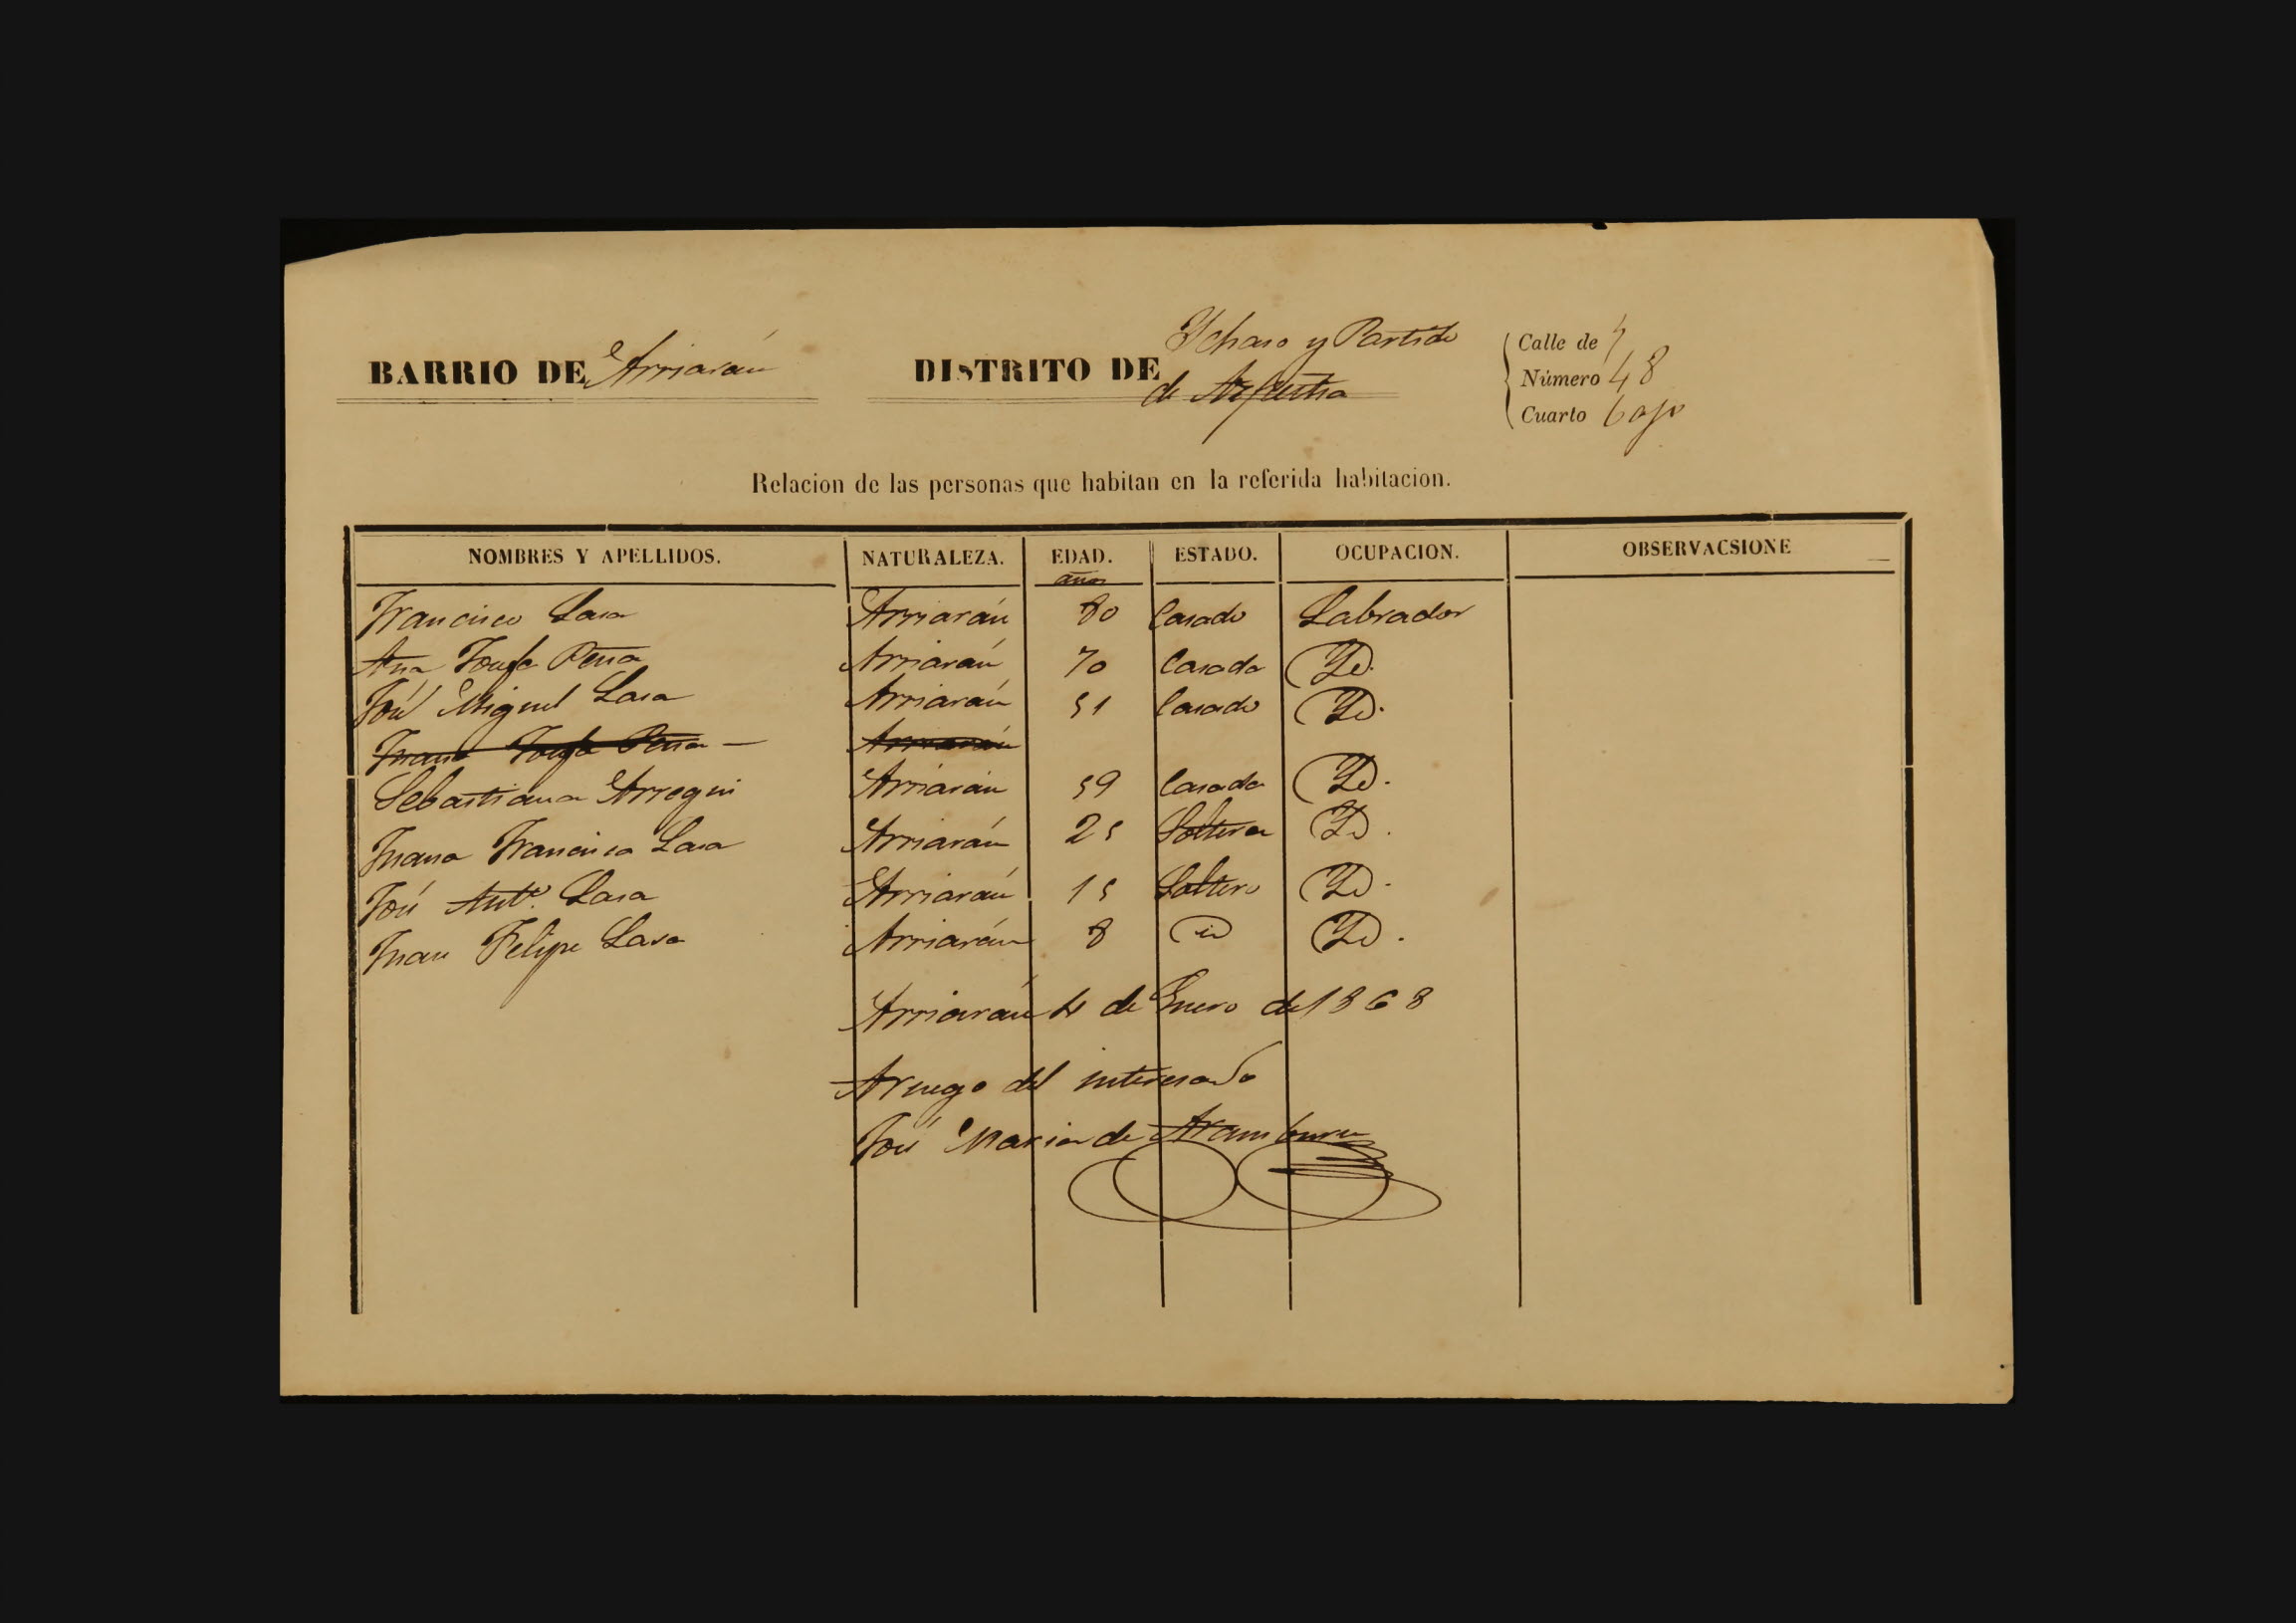 Ychaso y Partido
BARRIO DE Arriarán DISTRITO DE de Azpeitia
Calle de
Número 48
Cuarto bajo
Relacion de las personas que habitan en la referida habitacion.
NOMBRES Y APELLIDOS. NATURALEZA. EDAD. ESTADO. OCUPACION. OBSERVACSIONE
años
Francisco Lasa Arriarán 80 Casado Labrador
Ana Josefa Pena Arriarán 70 Casada Yd.
José Miguel Lasa Arriarán 51 Casado Yd.
Juana Josefa Pena — Arriarán
Sebastiana Arregui Arriarán 59 Casada Yd.
Juana Francisca Lasa Arriarán 25 Soltera Yd.
José Antº. Lasa Arriarán 15 Soltero Yd.
Juan Felipe Lasa Arriarán 8 id Yd.
Arriarán 4 de Enero de 1868
A ruego del interesado
José Maria de Aramburu